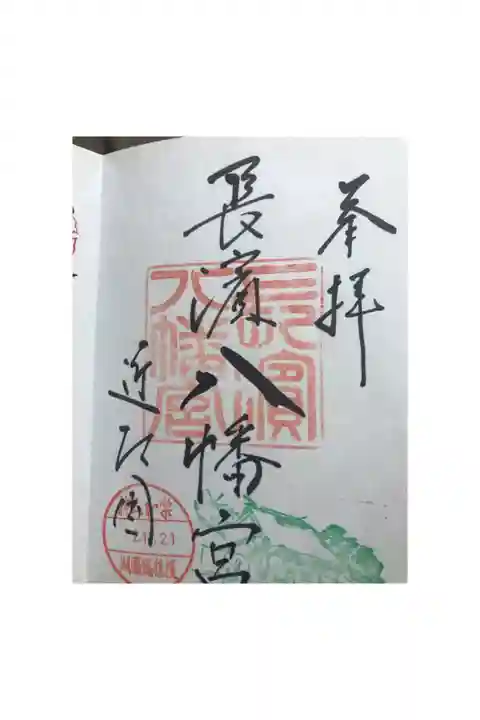 奉拝
長濱八幡宮
近江国
長濱八幡宮
21.21